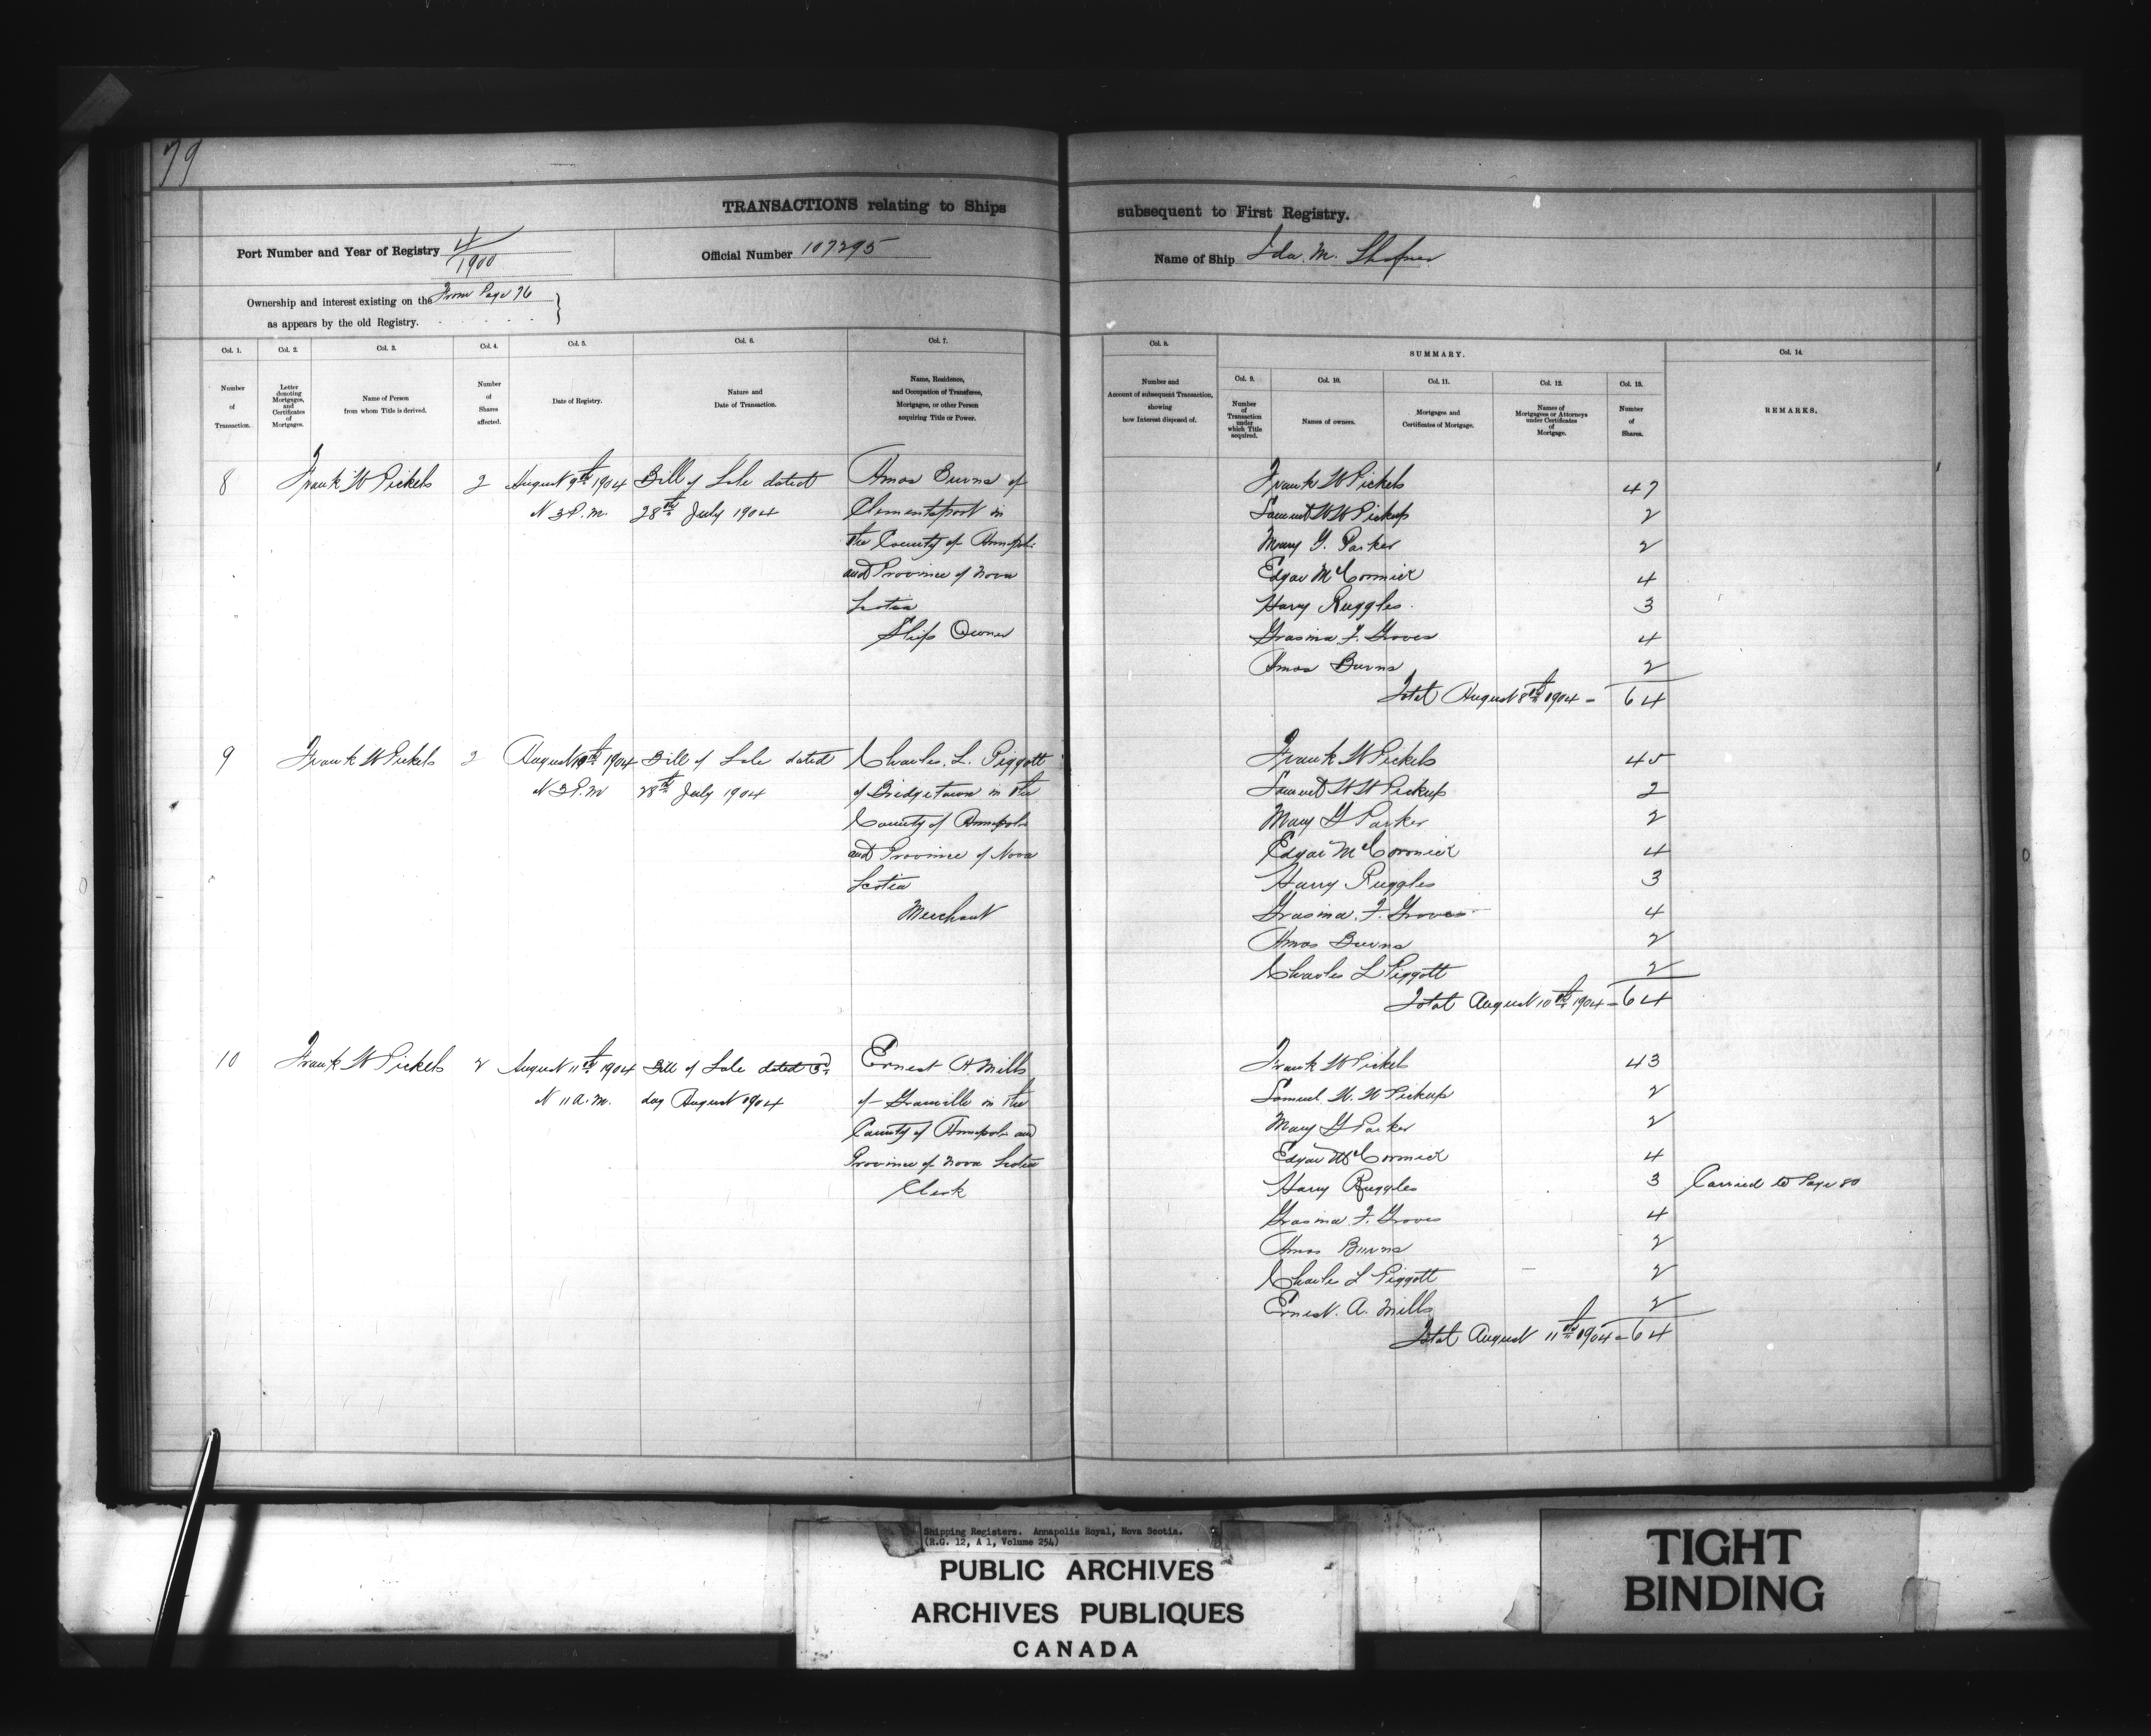 79
TRANSACTIONS relating to Ships subsequent to First Registry.
Port Number and Year of Registry 4/1900
Official Number 107295
Name of Ship Ida. M. Shafner
Ownership and interest existing on the From Page 76
as appears by the old Registry.
Col. 1.
Number
of
Transaction.
Col. 2.
Letter
denoting
Mortgages,
and
Certificates
of
Mortgages.
Col. 3.
Name of Person
from whom Title is derived.
Col. 4.
Number
of
Shares
affected.
Col. 5.
Date of Registry.
Col. 6.
Nature and
Date of Transaction.
Col. 7.
Name, Residence,
and Occupation of Transferee,
Mortgagee, or other Person
acquiring Title or Power.
Col. 8.
Number and
Account of subsequent Transaction,
showing
how Interest disposed of.
SUMMARY.
Col. 9.
Number
of
Transaction
under
which Title
acquired.
Col. 10.
Names of owners.
Col. 11.
Mortgages and
Certificates of Mortgage.
Col. 12.
Names of
Mortgagees or Attorneys
under Certificates
of
Mortgage.
Col. 13.
Number
of
Shares.
Col. 14.
REMARKS.
8 Frank W Pickels 2 August 9th 1904 Bill of Sale dated Amos Burns of
3 P.m. 28th July 1904 Clementsport in
the County of Annapolis
and Province of Nova
Scotia
Ship Owner
Frank W Pickels 47
Samuel W W Pickup 2
Mary G. Parker 2
Edgar McCormick 4
Harry Ruggles 3
Grasina F. Groves 4
Amos Burns 2
Total August 8th 1904 - 64
9 Frank W Pickels 2 August 10th 1904 Bill of Sale dated Charles. L. Piggott
3 P.m 28th July 1904 of Bridgetown in the
County of Annapolis
and Province of Nova
Scotia
Merchant
Frank W Pickels 45
Samuel W W Pickup 2
Mary G Parker 2
Edgar McCormick 4
Harry Ruggles 3
Grasina. F. Groves 4
Amos Burns 2
Charles L Piggott 2
Total August 10th 1904 - 64
10 Frank W Pickels 2 August 11th 1904 Bill of Sale dated 3rd Ernest A. Mills
11 a.m. day August 1904 of Granville in the
County of Annapolis and
Province of Nova Scotia
Clerk
Frank W Pickels 43
Samuel W. W Pickup 2
Mary G Parker 2
Edgar McCormick 4
Harry Ruggles 3 Carried to Page 80
Grasina F. Groves 4
Amos Burns 2
Charles L Piggott 2
Ernest. A. Mills 2
Total August 11th 1904 - 64
Shipping Registers. Annapolis Royal, Nova Scotia.
(R.G. 12, A 1, Volume 254)
PUBLIC ARCHIVES
ARCHIVES PUBLIQUES
CANADA
TIGHT
BINDING